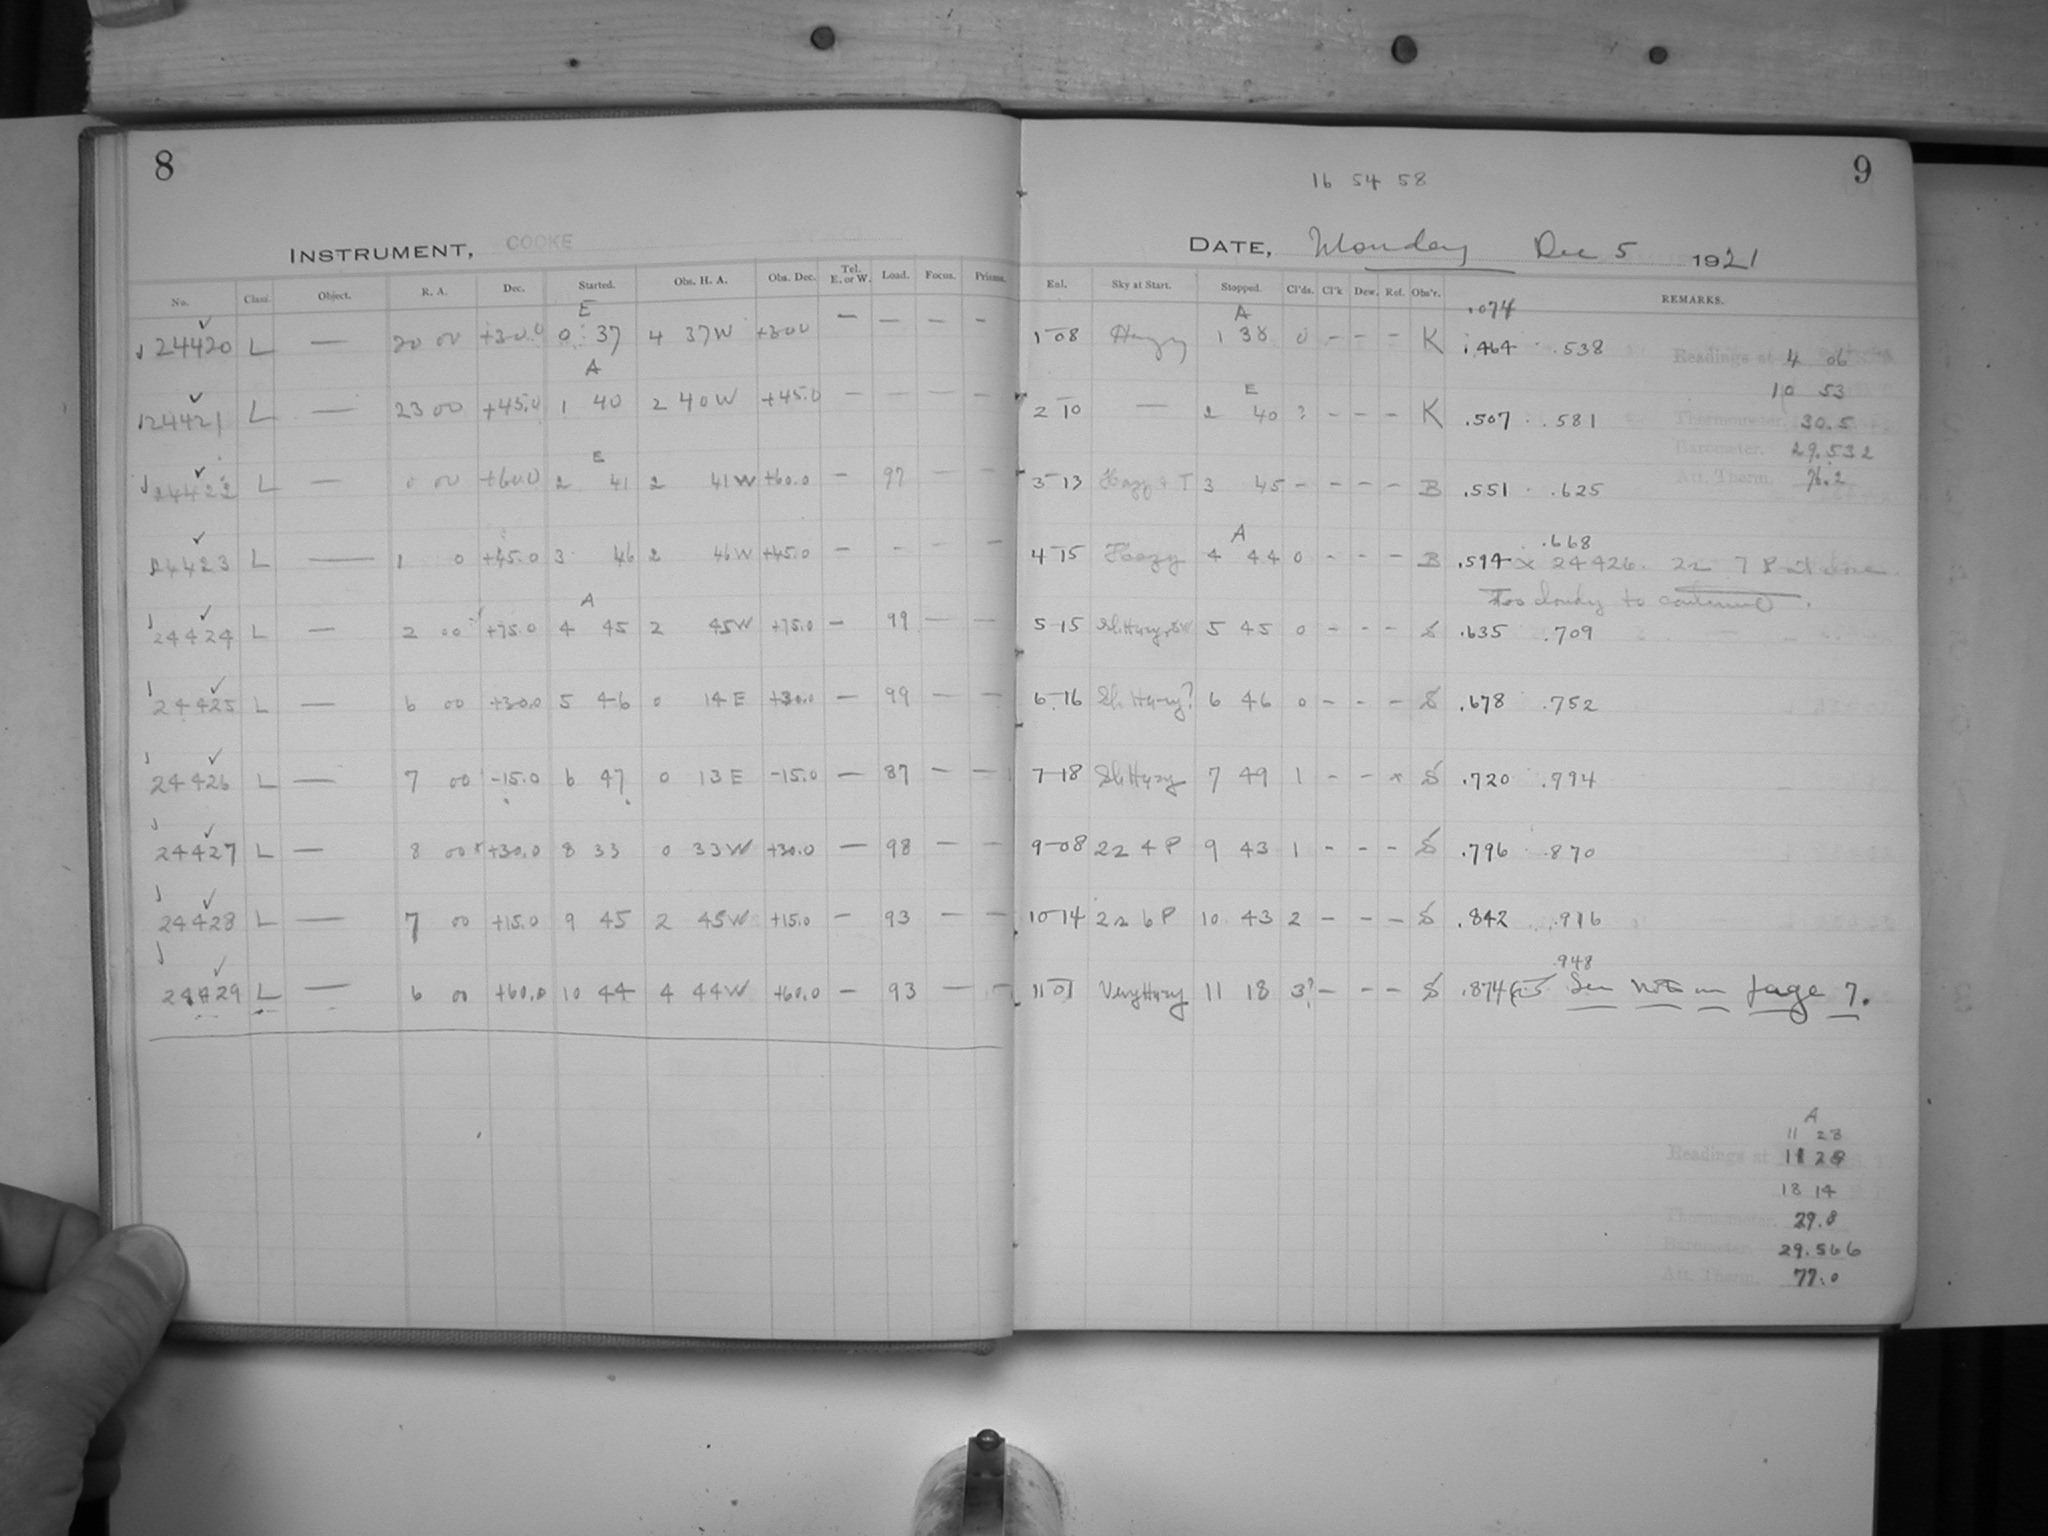 8
INSTRUMENT, COOKE
No. Class. Object. R. A. Dec. Started. Obs. H. A. Obs. Dec. Tel. E. or W. Load. Focus. Prisms.
E
24420 L — 20 00 +30.0 0 37 4 37W +30.0 — — — —
A
24421 L — 23 00 +45.0 1 40 2 40W +45.0 — — — —
E
24422 L — 0 00 +60.0 2 41 2 41W +60.0 — 97 — —
24423 L — 1 0 +45.0 3 46 2 46W +45.0 — - — —
A
24424 L — 2 00 +75.0 4 45 2 45W +75.0 — 99 — —
24425 L — 6 00 +30.0 5 46 0 14E +30.0 — 99 — —
24426 L — 7 00 -15.0 6 47 0 13E -15.0 — 87 — —
24427 L — 8 00 +30.0 8 33 0 33W +30.0 — 98 — —
24428 L — 7 00 +15.0 9 45 2 45W +15.0 — 93 — —
24429 L — 6 00 +60.0 10 44 4 44W +60.0 — 93 — —
9
16 54 58
DATE, Monday Dec 5 1921
Eal. Sky at Start. Stopped. Cl'ds. Cl'k Dew. Ref. Obs'r. REMARKS.
A .074
1-08 Hazy 1 38 0 - - - K .464 .538
Readings at 4 06
10 53
E
2-10 — 2 40 ? - - - K .507 .581
Thermometer, 30.5
Barometer. 29.532
Att. Therm. 76.2
3-13 Hazy & T 3 45 - - - - B .551 .625
A .668
4-15 Hazy 4 44 0 - - - B .594 x 24426. 2s 7 P at close
Too cloudy to continue.
5-15 Sl. Hazy 5 45 0 - - - S .635 .709
6-16 Sl. Hazy? 6 46 0 - - - S .678 .752
7-18 Sl. Hazy 7 49 1 - - x S .720 .794
9-08 2s 4 P 9 43 1 - - - S .796 .870
10-14 2s 6 P 10 43 2 - - - S .842 .916
.948
11-01 Very Hazy 11 18 3? - - - S .874 See note on page 7.
A
11 23
Readings at 11 28
18 14
Thermometer. 29.8
Barometer. 29.566
Att. Therm. 77.0